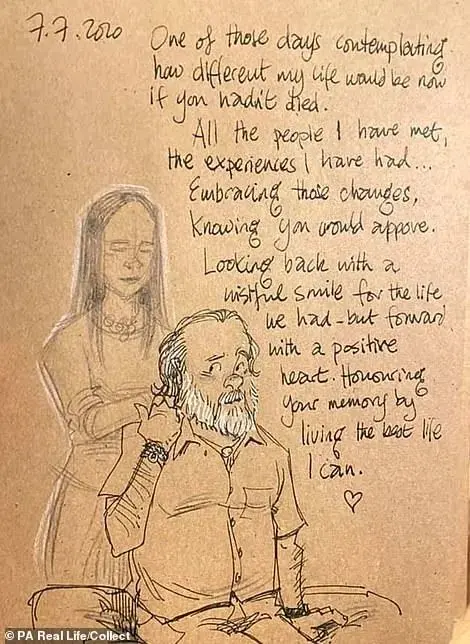 7.7.2020
One of those days contemplating
how different my life would be now
if you hadn't died.
All the people I have met,
the experiences I have had...
Embracing those changes,
knowing you would appove.
Looking back with a
wistful smile for the life
we had - but forward
with a positive
heart. Honouring
your memory by
living the best life
I can.
© PA Real Life/Collect